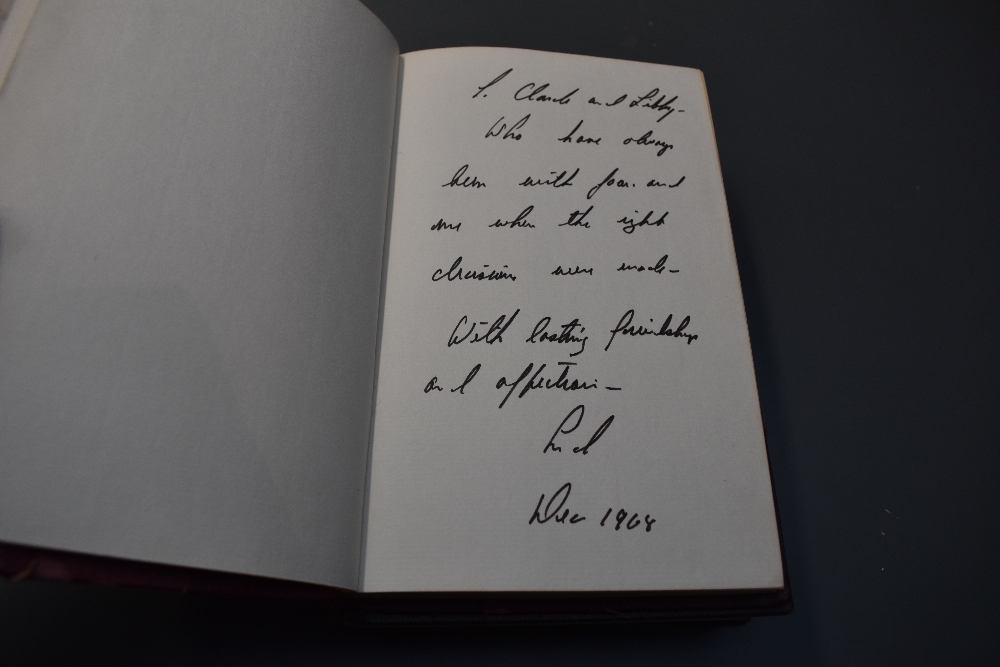 To Claude and Libby-
Who have always
been with Joan and
me when the right
decisions were made-
With lasting friendship
and affection-
Ted
Dec 1968